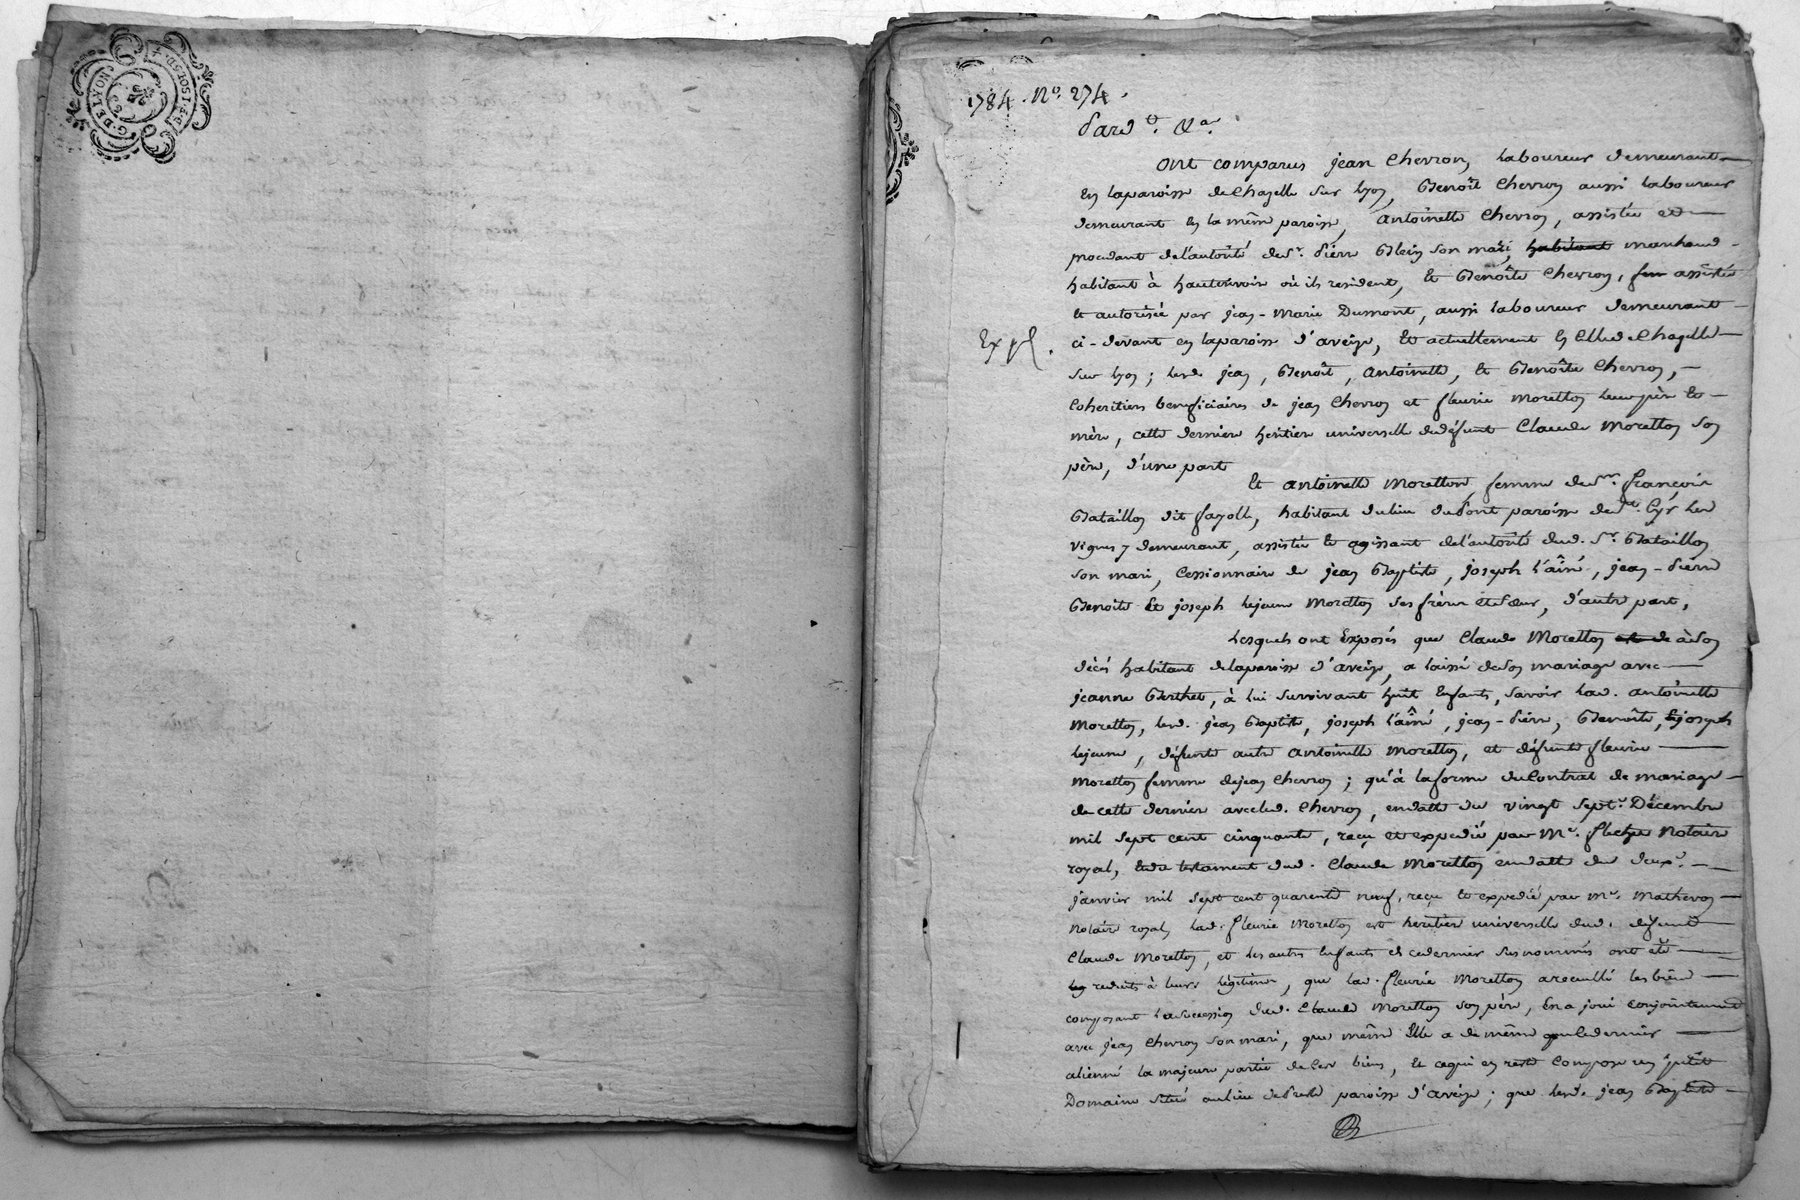 G. DE LYON
1784. No. 274.
Pard.t &a.
Ont comparus jean Chevron, Laboureur demeurant
En laparoisse de Chazelle sur lyon, Benoît Chevron aussi laboureur
demeurant en la même paroisse, Antoinette Chevron, assistée et
procedant de l'autorité de Sr. Pierre Blein son mari, habitant marchand
habitant à hauterivoire où ils resident, Et Benoîte Chevron, assistée
Et autorisée par jean-Marie Dumont, aussi laboureur demeurant
Exp.
ci-devant en laparoisse d'aveize, Et actuellement en Chazelle
sur lyon; lesd. jean, Benoît, Antoinette, Et Benoîte Chevron,
Coheritiers beneficiaires de jean Chevron et fleurie Moretton leurs père Et
mère, cette derniere héritiere universelle dudéfunt Claude Moretton son
père, d'une part
Et antoinette Moretton, femme de Sr. françois
Bataillon dit fayolle, habitant du lieu du Pont paroisse de St. Cyr les
Vignes y demeurant, assistée Et agissant de l'autorité dud. Sr. Bataillon
son mari, Cessionnaire de jean Baptiste, joseph l'aîné, jean-Pierre
Benoîte Et joseph lejeune Moretton ses frères et sœur, d'autre part,
Lesquels ont Exposés que Claude Moretton àson
décès habitant de laparoisse d'aveize, a laissé deson mariage avec
jeanne Berthet, à lui survivant huit Enfants, savoir lad. antoinette
Moretton, lesd. jean Baptiste, joseph l'aîné, jean-Pierre, Benoîte, Et joseph
lejeune, défunte autre antoinette Moretton, et défunte fleurie
Moretton femme dejean Chevron; qu'à laforme du Contrat de mariage
de cette derniere avecled. Chevron, endatte du vingt sept. Décembre
mil sept cent cinquante, reçu et expedié par Me. flechet Notaire
royal, Et du testament dud. Claude Moretton endatte du deux
janvier mil sept cent quarente neuf, reçu Et expedié par Me. Mathevon
Notaire royal, Lad. fleurie Moretton est heritiere universelle dud. défunt
Claude Moretton, et les autres Enfants de cedernier susnommés ont été
reduits à leurs légitimes, que lad. fleurie Moretton arecueilli les biens
composant la succession dud. Claude Moretton son père, En a joui conjointement
avec jean Chevron son mari, que même Elle a de même que cedernier
aliénné la majeure partie de Ces biens, Et cequi en reste Compose un petit
Domaine situé aulieu de paroisse d'aveize; que lesd. jean Baptiste